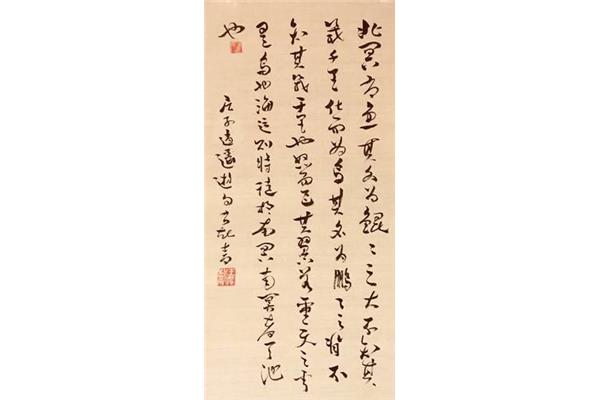 北冥有魚其名為鯤〻之大不知其
幾千里化而為鳥其名為鵬〻之背不
知其幾千里也怒而飛其翼若垂天之雲
是鳥也海運則將徙於南冥南冥者天池
也
庄子逍遙遊句